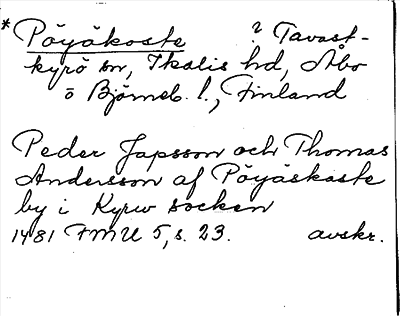 * Pöyäkoste ? Tavast-
kyrö sn, Ikalis hd, Åbo
ö Björneb. l., Finland
Peder Japsson och Thomas
Andersson af Pöyäskaste
by i Kyrw socken
1481 FMU 5, s. 23. avskr.